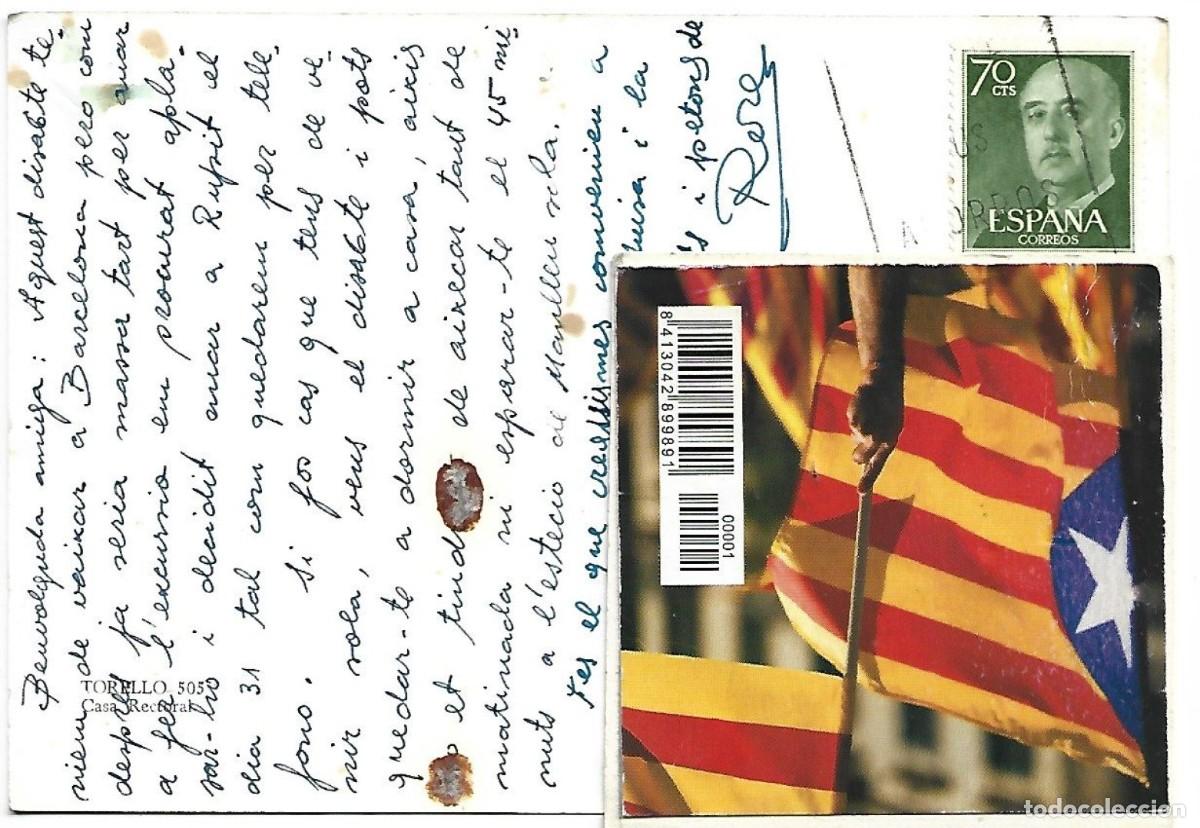 Benvolguda amiga: Aquest disabte te-
niem de vaixar a Barcelona pero com
despres ja seria massa tart per anar
a fer l'excursio em procurat apla-
sar-ho i decidit anar a Rupit el
dia 31 tal com quedarem per tele-
fono. si fos cas que tens de ve-
nir sola, vens el disabte i pots
quedar-te a dormir a casa, aixis
no et tindr de aixecar tant de
matinada ni esperar-te el 45 mi-
nuts a l'estecio de Manlleu sola.
el que convenieu a
luisa i la
s i petons de
TORELLO 505
Casa Rectoral
70
CTS
ESPAÑA
CORREOS
8 413042 899891
00001
todocoleccion